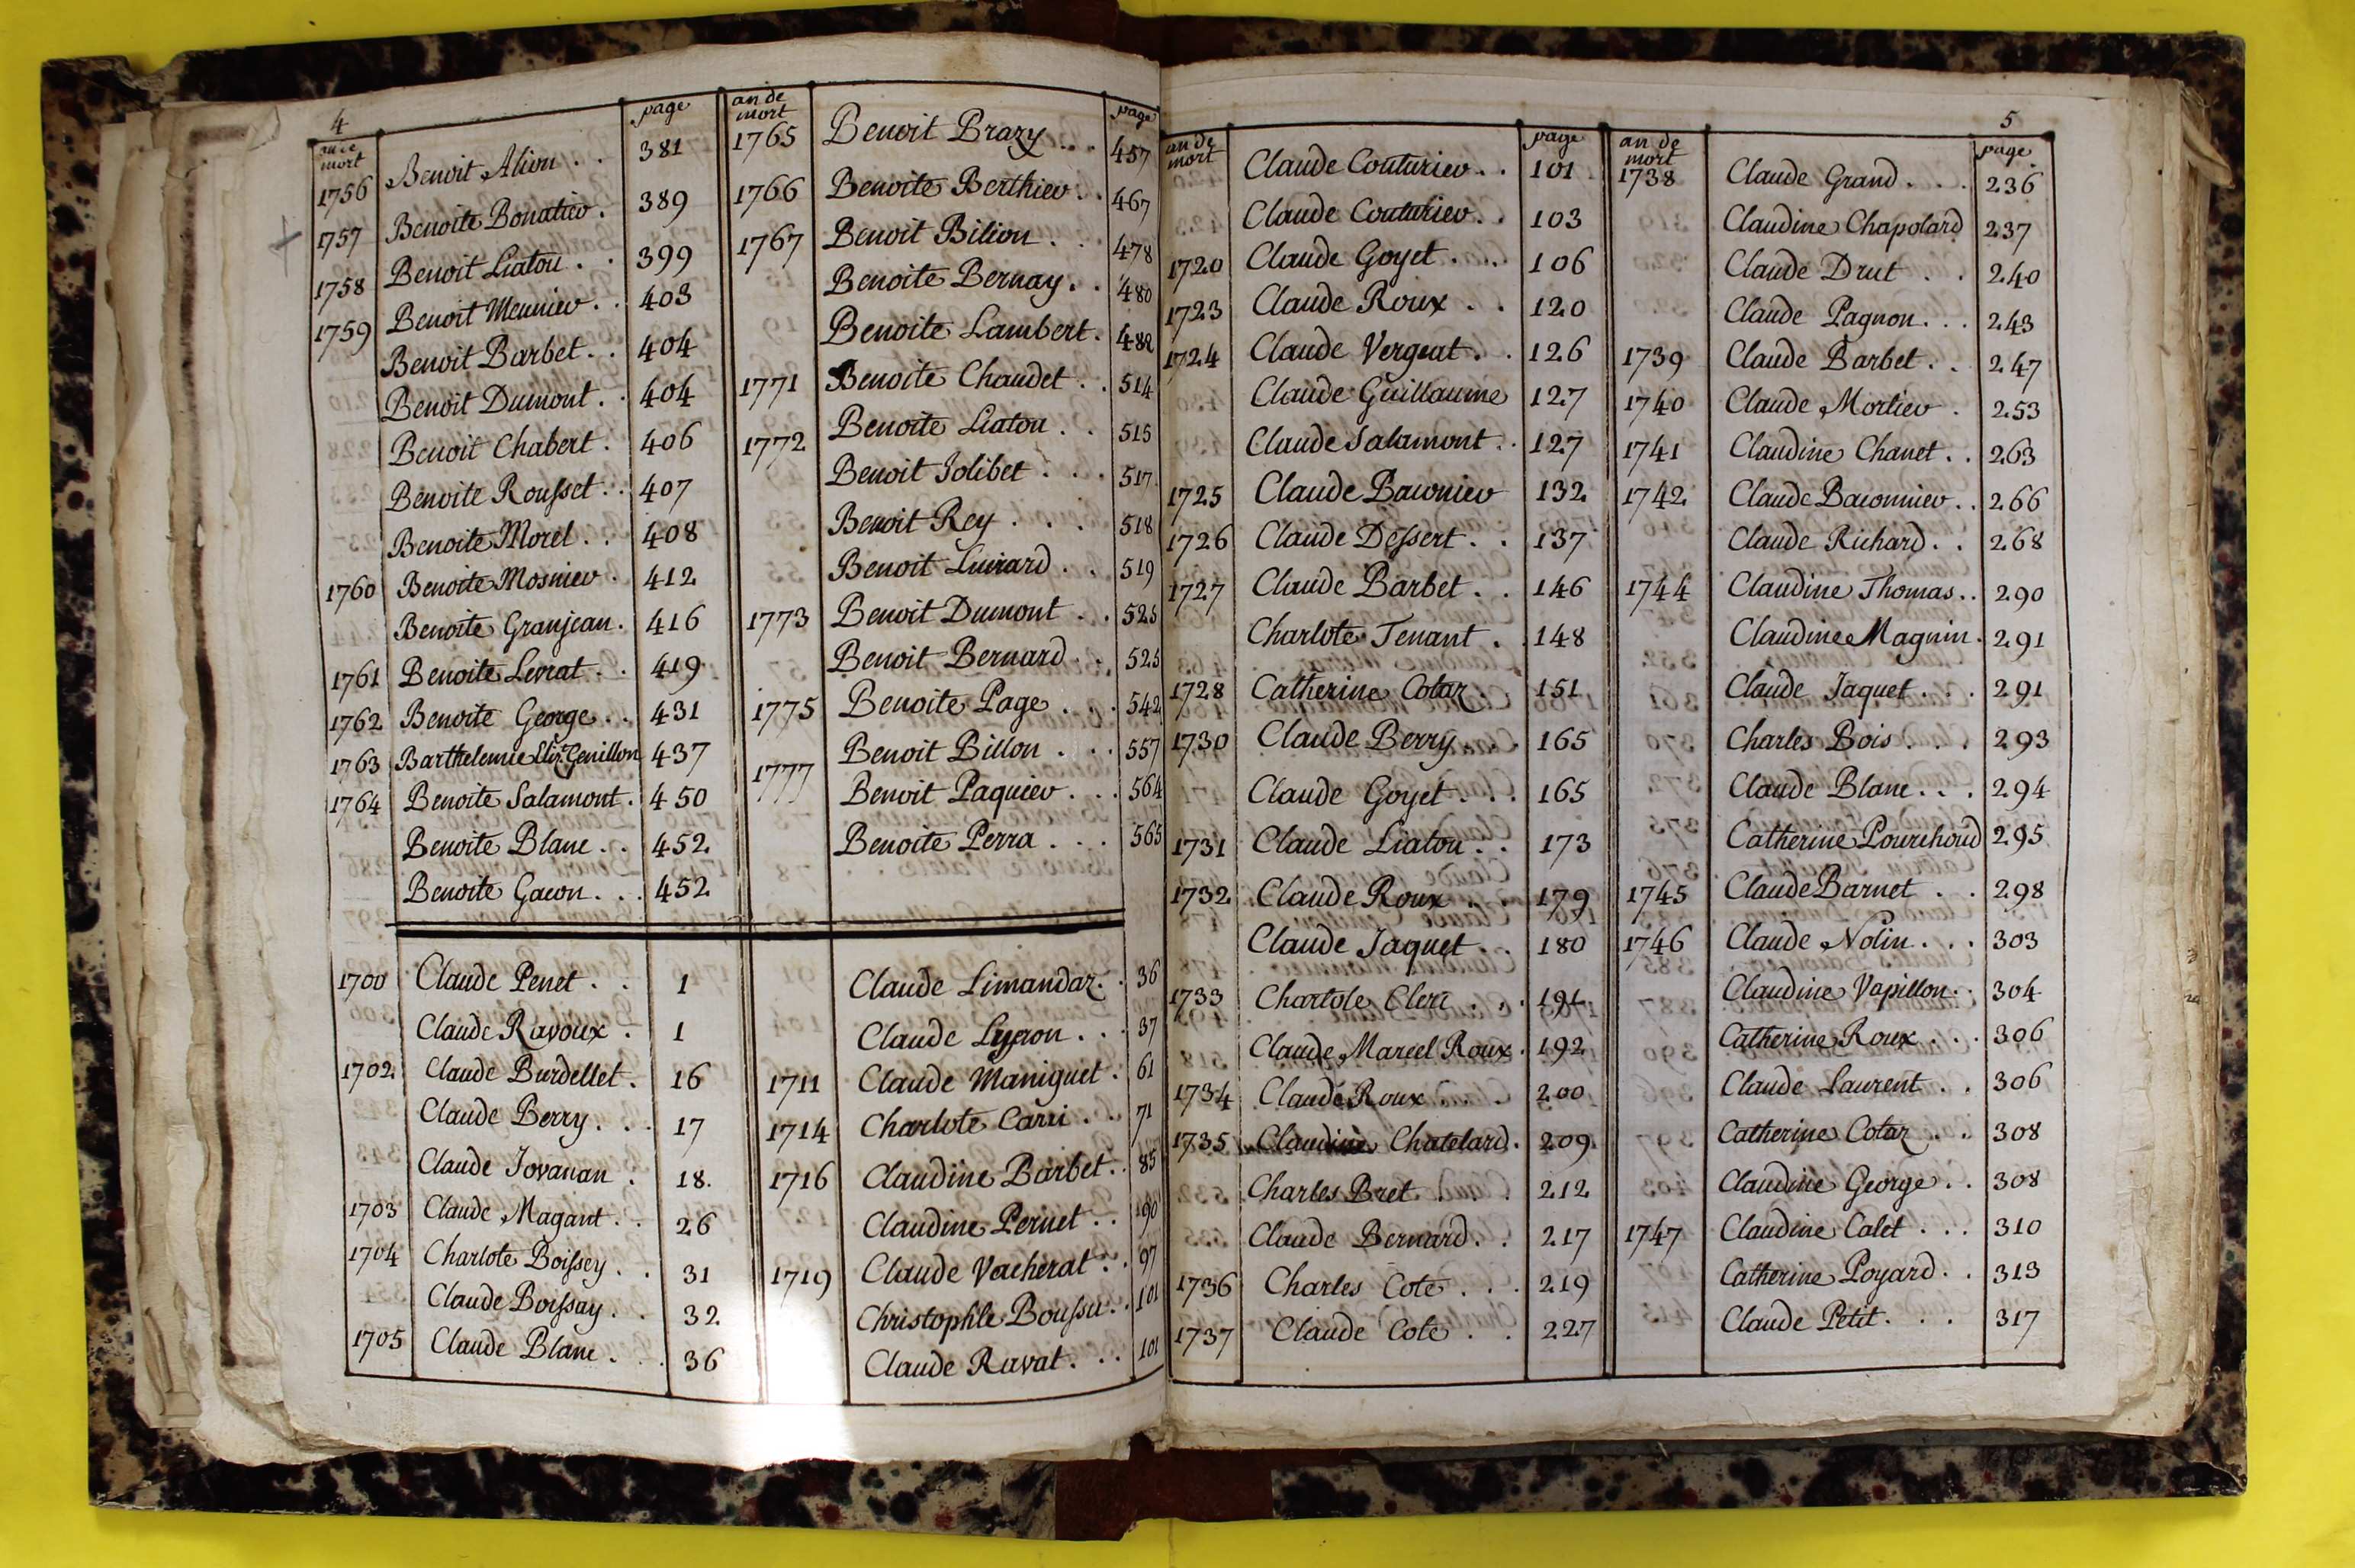 4
an de mort page
1756 Benoit Alion . . 381
1757 Benoite Bonatier . 389
1758 Benoit Liatou . . 399
1759 Benoit Meunier . . 403
Benoit Barbet . . 404
Benoit Dumont . . 404
Benoit Chabert . 406
Benoite Rousset . . 407
Benoite Morel . . 408
1760 Benoite Mosnier . 412
Benoite Granjean . 416
1761 Benoite Levrat . . 419
1762 Benoite George . . 431
1763 Barthelemie Eliz. Genillon 437
1764 Benoite Salamont . 450
Benoite Blanc . . 452
Benoite Gacon . . . 452
1700 Claude Penet . . 1
Claude Ravoux . 1
1702 Claude Burdellet . 16
Claude Berry . . . 17
Claude Jovanan . 18.
1703 Claude Magant . . 26
1704 Charlote Boissey . . 31
Claude Boissay . . 32
1705 Claude Blanc . . 36
an de mort page
1765 Benoit Brazy . . . 457
1766 Benoite Berthier . . 467
1767 Benoit Bilion . . 478
Benoite Bernay . . 480
Benoite Lambert . 482
1771 Benoite Chaudet . . 514
1772 Benoite Liatou . . 515
Benoit Jolibet . . . 517
Benoit Rey . . . 518
Benoit . . 519
1773 Benoit Dumont . . 525
Benoit Bernard . . 525
1775 Benoite Page . . . 542
Benoit Billon . . . 557
1777 Benoit Paquier . . . 564
Benoite Perra . . . 565
Claude Limandaz . . 36
Claude . . . 37
1711 Claude Maniguet . 61
1714 Charlote Carri . . 71
1716 Claudine Barbet . . 85
Claudine Pernet . . 90
1719 Claude Vacherat . . 97
Christophle Boussu . . 101
Claude Ravat . . . 101
5
an de mort page
Claude Couturier . . 101
Claude Couturier . . 103
1720 Claude Goyet . . . 106
1723 Claude Roux . . 120
1724 Claude Vergeat . . 126
Claude Guillaume 127
Claude Salamont . . 127
1725 Claude Baconier 132
1726 Claude Dessert . . 137
1727 Claude Barbet . . 146
Charlote Tenant . . 148
1728 Catherine Cotaz . . 151
1730 Claude Berry . . . 165
Claude Goyet . . . 165
1731 Claude Liatou . . 173
1732 Claude Roux . . 179
Claude Jaquet . . 180
1733 Charlote Clerc . . . 191
Claude Marcel Roux . 192
1734 Claude Roux . . 200
1735 Claudine Chatelard . 209
Charles Bret . . 212
Claude Bernard . . 217
1736 Charles Cote . . . 219
1737 Claude Cote . . 227
an de mort page
1738 Claude Grand . . . 236
Claudine Chapolard 237
Claude Drut . . 240
Claude Pagnon . . . 243
1739 Claude Barbet . . 247
1740 Claude Mortier . 253
1741 Claudine Chanet . . 263
1742 Claude Baconnier . . 266
Claude Richard . . 268
1744 Claudine Thomas . . 290
Claudine Magnin . 291
Claude Jaquet . . . 291
Charles Bois . . . 293
Claude Blanc . . . 294
Catherine Pourchoud 295
1745 Claude Barnet . . 298
1746 Claude Nolin . . . 303
Claudine Vapillon . . 304
Catherine Roux . . . 306
Claude Laurent . . 306
Catherine Cotaz . . 308
Claudine George . . 308
1747 Claudine Calet . . . 310
Catherine Poyard . . 313
Claude Petit . . . 317